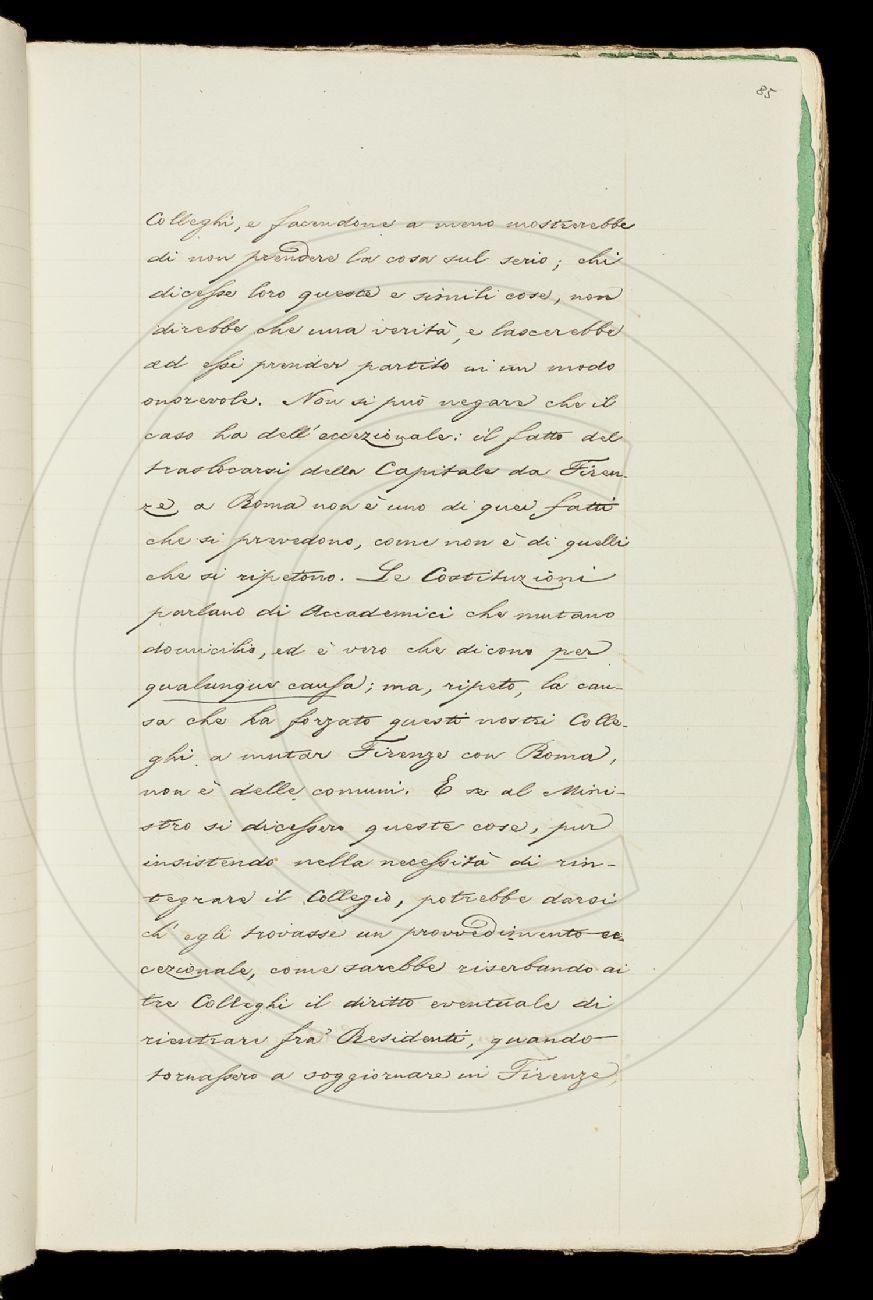 85
Colleghi, e facendone a meno mostrerebbe
di non prendere la cosa sul serio; chi
dicesse loro queste e simili cose, non
direbbe che una verità, e lascerebbe
ad essi prender partito in un modo
onorevole. Non si può negare che il
caso ha dell'eccezionale: il fatto del
traslocarsi della Capitale da Firen-
ze a Roma non è uno di quei fatti
che si prevedono, come non è di quelli
che si ripetono. Le Costituzioni
parlano di Accademici che mutano
domicilio, ed è vero che dicono per
qualunque causa; ma, ripeto, la cau-
sa che ha forzato questi nostri Colle-
ghi a mutar Firenze con Roma,
non è delle comuni. E se al Mini-
stro si dicessero queste cose, pur
insistendo nella necessità di rin-
tegrare il Collegio, potrebbe darsi
ch'egli trovasse un provvedimento ec-
cezionale, come sarebbe riserbando ai
tre Colleghi il diritto eventuale di
rientrare fra' Residenti, quando
tornassero a soggiornare in Firenze,